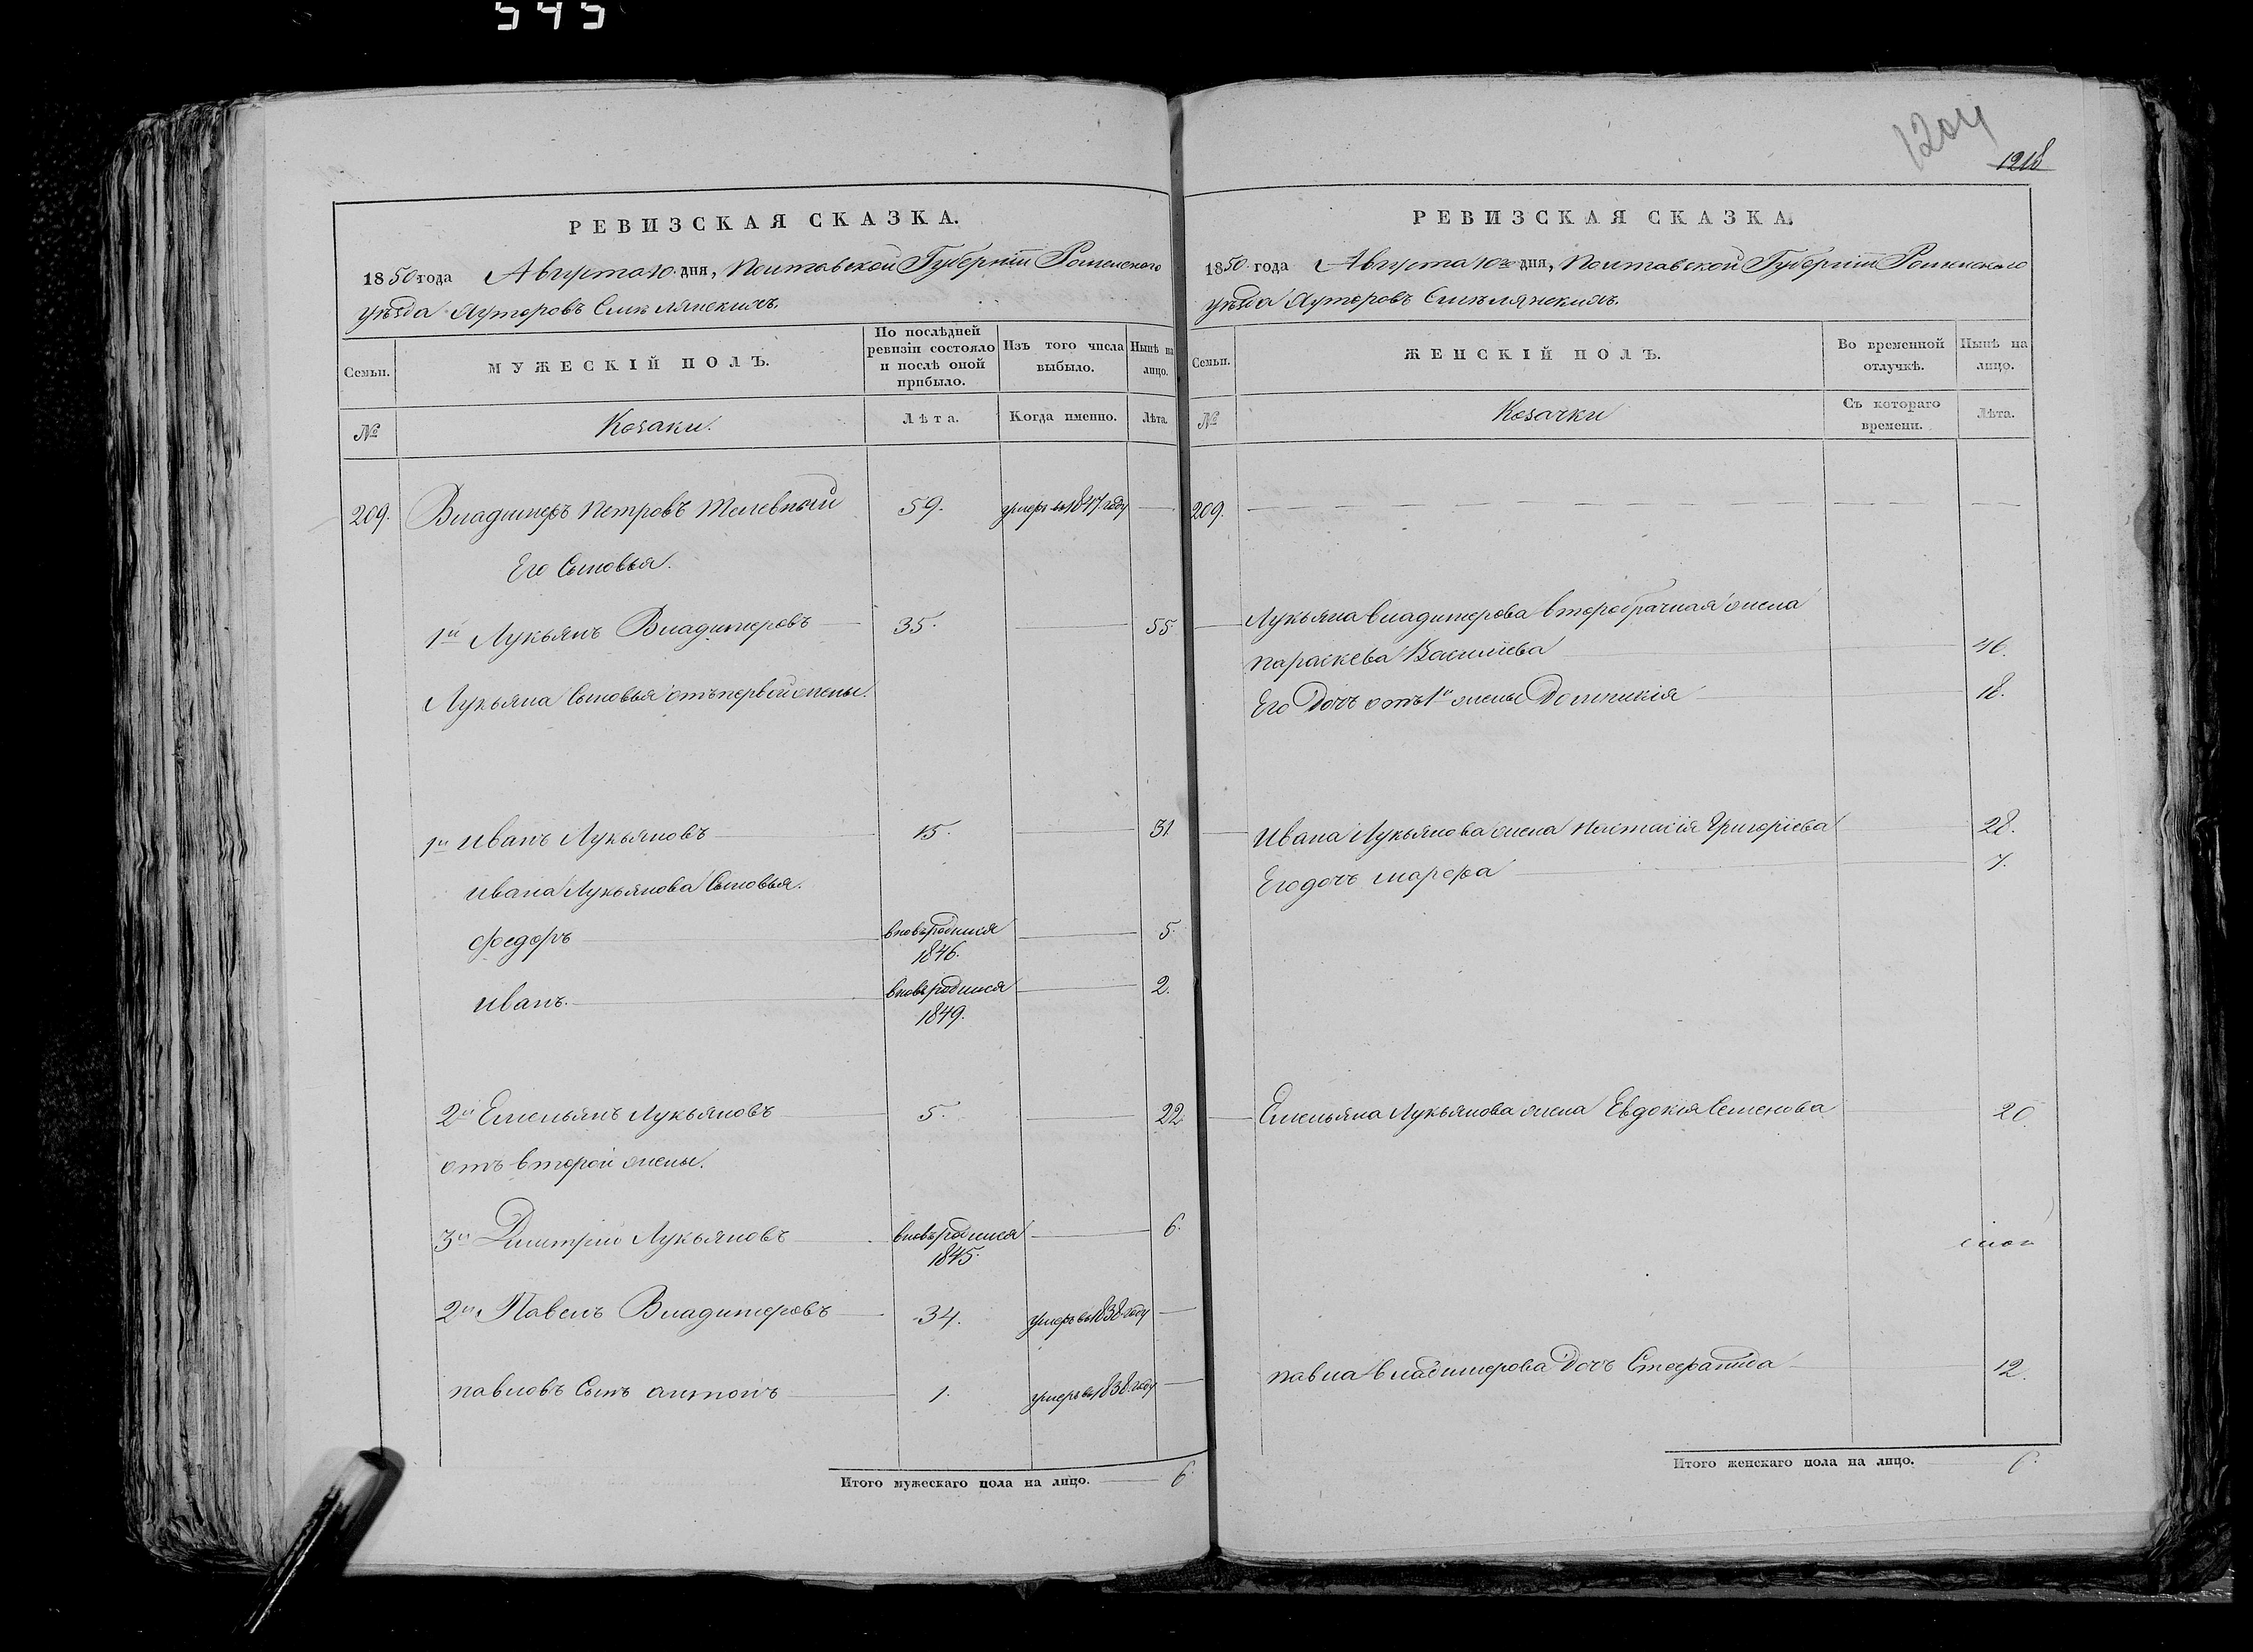 545
1204
1218
РЕВИЗСКАЯ СКАЗКА.
1850 года Августа 10 дня, Полтавской Губерніи Роменского
уѣзда Хуторовъ Смѣлянскихъ.
Семьи.
МУЖЕСКІЙ ПОЛЪ.
По послѣдней
ревизіи состояло
и послѣ оной
прибыло.
Изъ того числа
выбыло.
Нынѣ на
лицо.
№
Козаки.
Лѣта.
Когда именно.
Лѣта.
209. Владимеръ Петровъ 59. умеръ въ 1847 году
Его Сыновья.
1й Лукьянъ Владимеровъ 35. 55.
Лукьяна Сыновья отъ первой жены.
1й Иванъ Лукьяновъ 15. 31
Ивана Лукьянова Сыновья.
Федоръ вновьродился 5.
1846.
Иванъ. вновьродился 2.
1849.
2й Емельянъ Лукьяновъ 5. 22
отъ второй жены.
3й Дмитрій Лукьяновъ вновьродился 6.
1845.
2й Павелъ Владимеровъ 34. умеръ въ 1838 году
Павловъ Сынъ Антонъ 1. умеръ въ 1838 году
Итого мужескаго пола на лицо. 6.
РЕВИЗСКАЯ СКАЗКА.
1850 года Августа 10 дня, Полтавской Губерніи Роменского
уѣзда Хуторовъ Смѣлянскихъ.
Семьи.
ЖЕНСКІЙ ПОЛЪ.
Во временной
отлучкѣ.
Нынѣ на
лицо.
№
Козачки
Съ котораго
времени.
Лѣта.
209.
Лукьяна Владимерова второбрачная жена
Параскева Василіева 46.
Его Дочь отъ 1й жены Домникія 18.
Ивана Лукьянова жена Настасія Григоріева 28.
Его дочь Марфа 7.
Емельяна Лукьянова жена Евдокія Семенова 20.
Павла Владимерова Дочь Стефанида 12.
Итого женскаго пола на лицо.